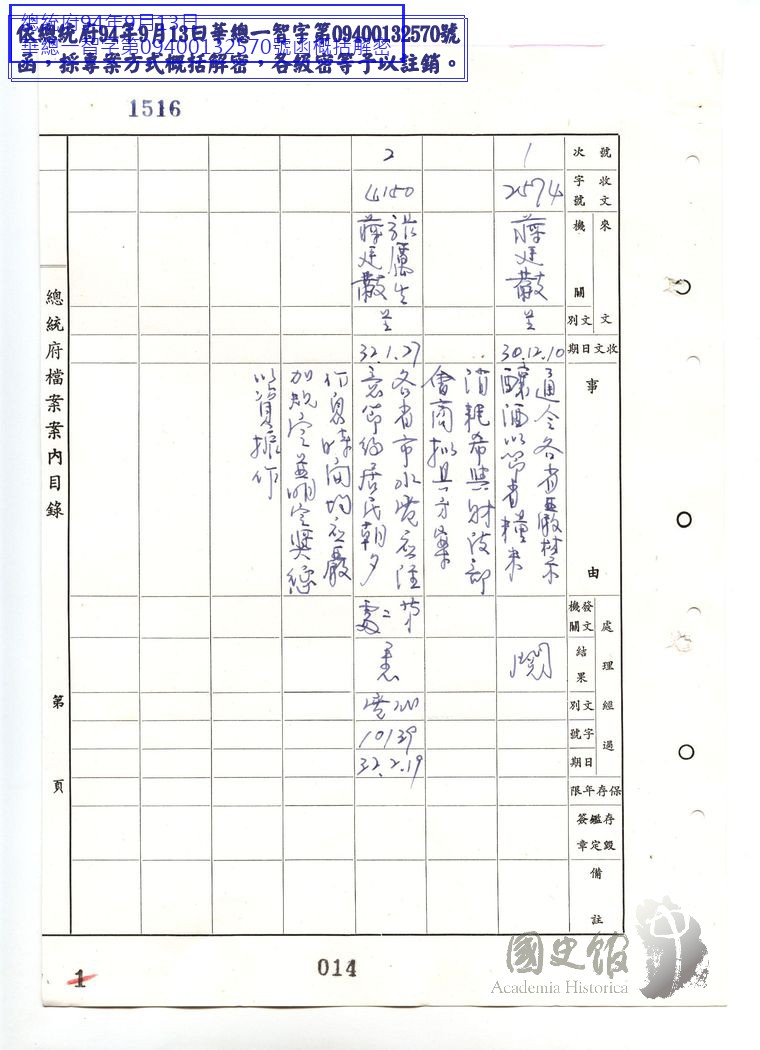 總統府94年9月13日
華總一智字第09400132570號函概括解密
依總統府94年9月13日華總一智字第09400132570號
函，採專案方式概括解密，各級密等予以註銷。
1516
號次
收文字號
來文機關
文別
收文日期
事由
處理經過
發文機關
結果
文別
字號
日期
保存年限
存毀鑑定簽章
備註
1
2574
蔣廷黻
呈
30.12.10
通令各省嚴禁
釀酒以節省糧米
消耗希與財政部
會商擬具方案
閱
2
4150
張厲生
蔣廷黻
呈
32.1.27
各省市水電應注
意節約居民朝夕
作息時間均應嚴
加規定並明定獎懲
以資振作
第二處
悉
10139
32.2.19
總統府檔案案內目錄
第 頁
1
014
國史館
Academia Historica